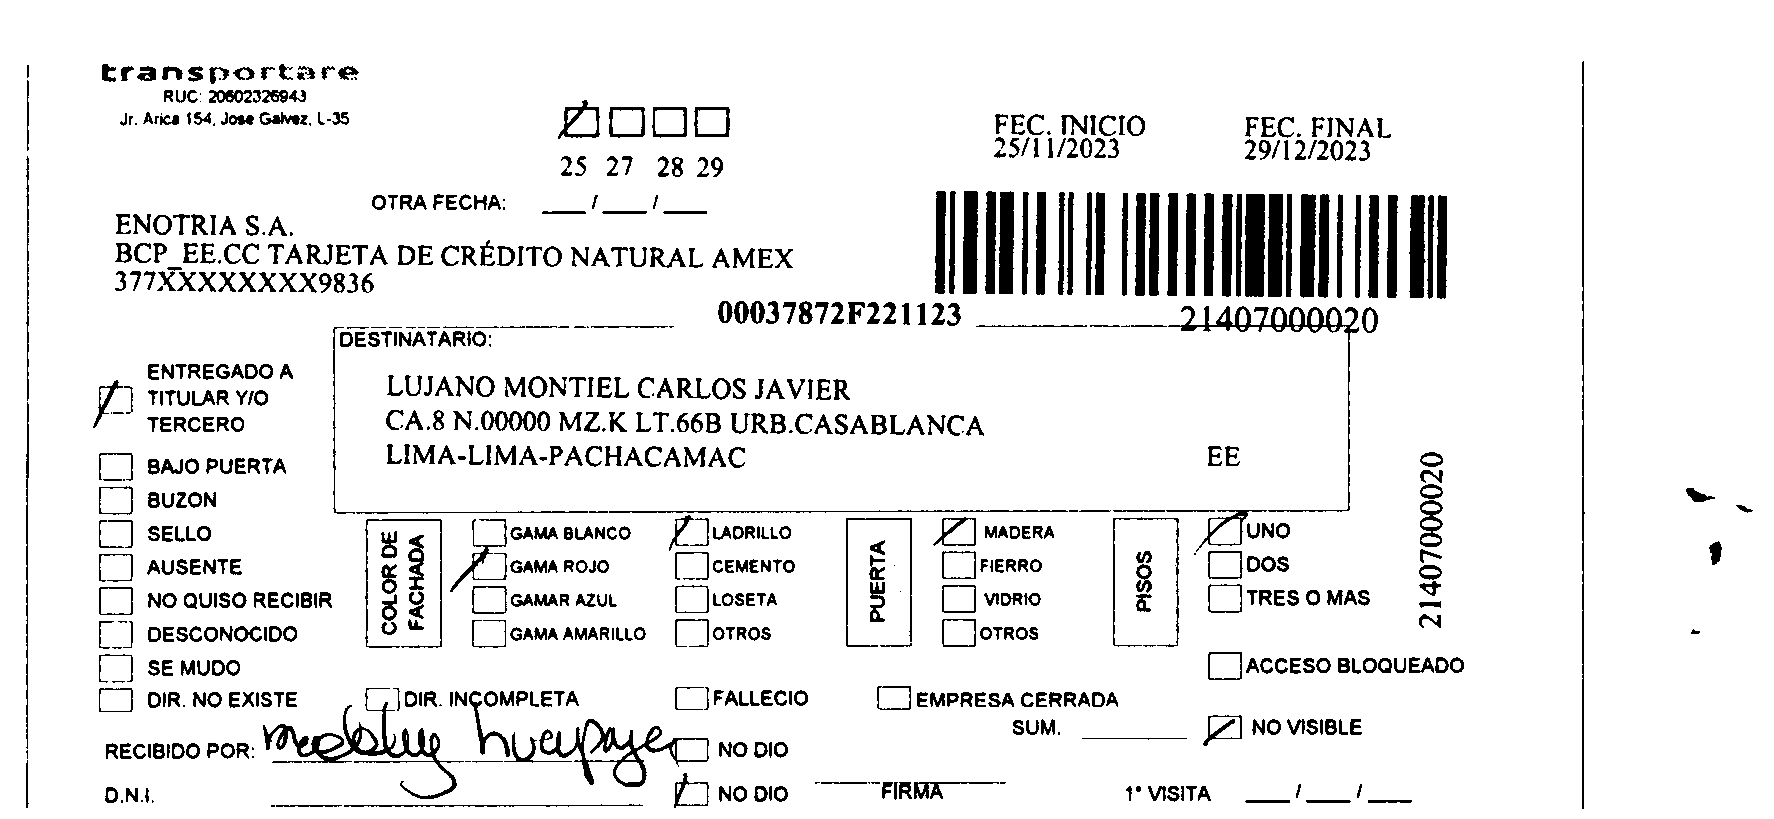 transportare
RUC: 20602326943
Jr. Arica 154, Jose Galvez, L-35
25 27 28 29
OTRA FECHA: ___/___/___
FEC. INICIO
25/11/2023
FEC. FINAL
29/12/2023
ENOTRIA S.A.
BCP_EE.CC TARJETA DE CRÉDITO NATURAL AMEX
377XXXXXXXXX9836
00037872F221123
21407000020
DESTINATARIO:
LUJANO MONTIEL CARLOS JAVIER
CA.8 N.00000 MZ.K LT.66B URB.CASABLANCA
LIMA-LIMA-PACHACAMAC EE
ENTREGADO A
TITULAR Y/O
TERCERO
BAJO PUERTA
BUZON
SELLO
AUSENTE
NO QUISO RECIBIR
DESCONOCIDO
SE MUDO
DIR. NO EXISTE
COLOR DE
FACHADA
GAMA BLANCO
GAMA ROJO
GAMAR AZUL
GAMA AMARILLO
LADRILLO
CEMENTO
LOSETA
OTROS
PUERTA
MADERA
FIERRO
VIDRIO
OTROS
PISOS
UNO
DOS
TRES O MAS
21407000020
ACCESO BLOQUEADO
DIR. INCOMPLETA
FALLECIO
EMPRESA CERRADA
SUM. ______
NO VISIBLE
RECIBIDO POR:
NO DIO
D.N.I.
NO DIO
FIRMA
1° VISITA ___/___/___